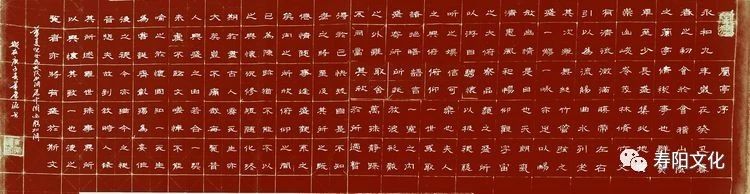 蘭亭序
永和九年歲在癸丑暮
春之初會於會稽山陰
之蘭亭脩禊事也群賢
畢至少長咸集此地有
崇山峻領茂林脩竹又
有清流激湍暎帶左右
引以為流觴曲水列坐
其次雖無絲竹管弦之
盛一觴一詠亦足以暢
敘幽情是日也天朗氣
清惠風和暢仰觀宇宙
之大俯察品類之盛所
以遊目騁懷足以極視
聽之娛信可樂也夫人
之相與俯仰一世或取
諸懷抱悟言一室之內
或因寄所託放浪形骸
之外雖取舍萬殊靜躁
不同當其欣於所遇暫
得於己快然自足不知
老之將至及其所之既
惓情隨事遷感慨係之
矣向之所欣俛仰之間
已為陳跡猶不能不以
之興懷況脩短隨化終
期於盡古人云死生亦
大矣豈不痛哉每覽昔
人興感之由若合一契
未嘗不臨文嗟悼不能
喻之於懷固知一死生
為虛誕齊彭殤為妄作
後之視今亦由今之視
昔悲夫故列敘時人錄
其所述雖世殊事異所
以興懷其致一也後之
覽者亦將有感於斯文
春阳文化